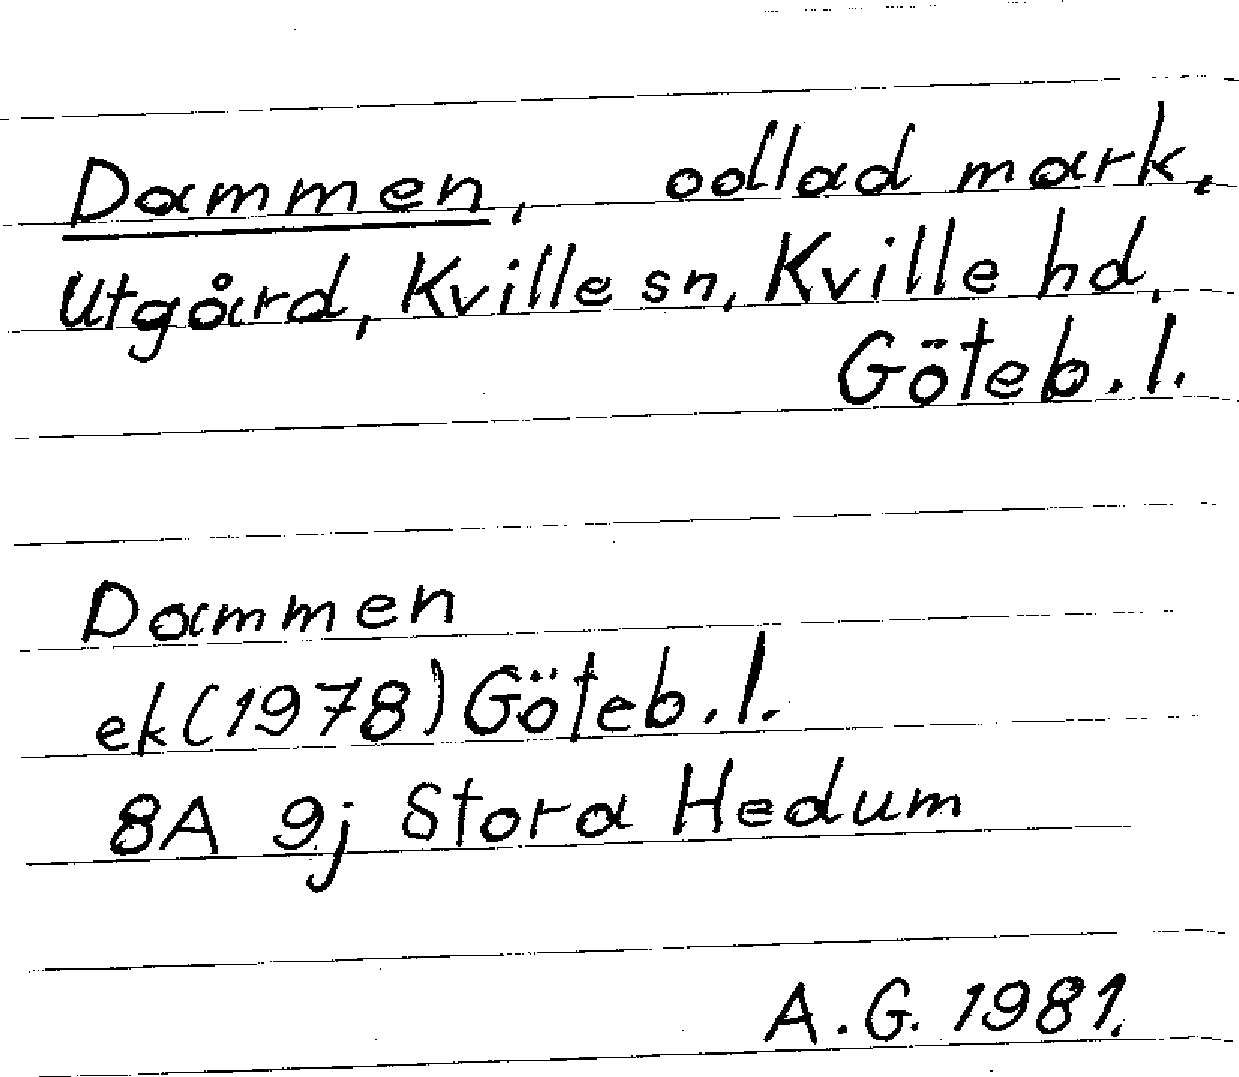 Dammen, odlad mark,
Utgård, Kville sn, Kville hd,
Göteb. l.
Dammen
ek (1978) Göteb. l.
8A 9j Stora Hedum
A. G. 1981.